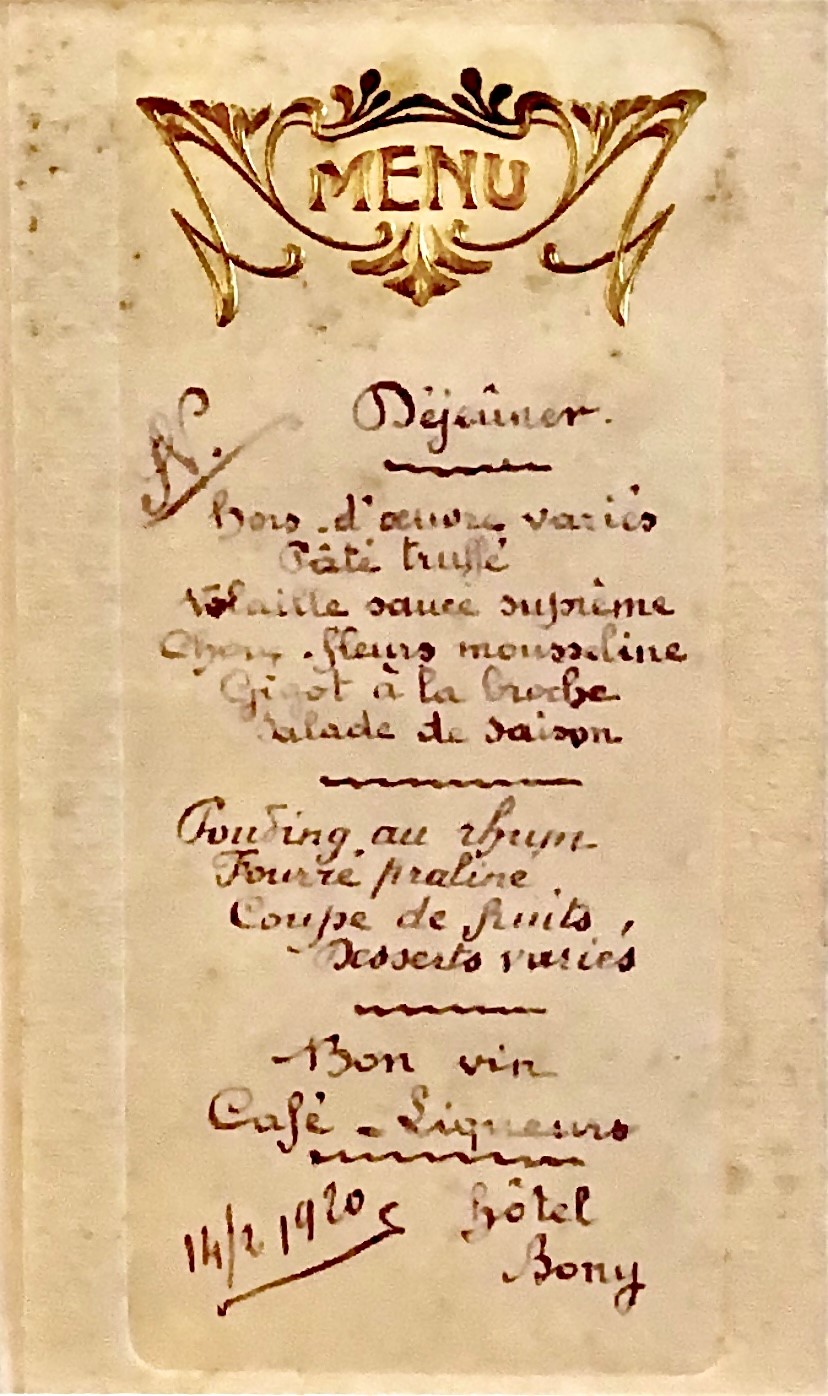 MENU
Déjeûner.
N.
hors-d'œuvre variés
Pâté truffé
Volaille sauce suprème
Choux-fleurs mousseline
Gigot à la broche
Salade de saison
Pouding au rhum
Fourré praliné
Coupe de fruits,
Desserts variés
Bon vin
Café - Liqueurs
14/2 1920
hôtel
Bony